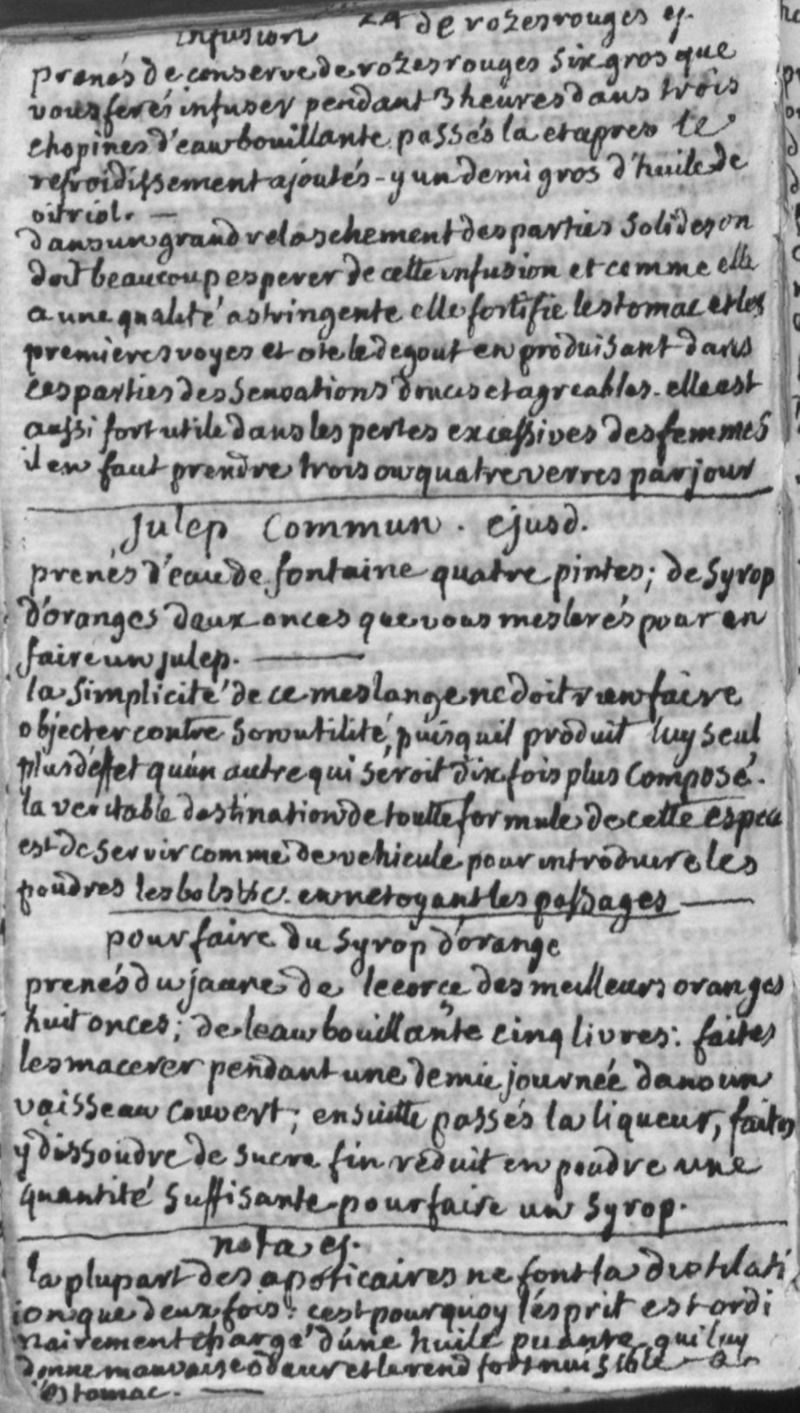 infusion 24 de rozes rouges ej.
prenés de conserve de rozes rouges six gros que
vous ferés infuser pendant 3 heures dans trois
chopines d'eau bouillante passés la et apres le
refroidissement ajoutés-y un demi gros d'huile de
vitriol. —
dans un grand relaschement des parties solides on
doit beaucoup esperer de cette infusion et comme elle
a une qualité astringente elle fortifie lestomac et les
premieres voyes et ote le degout en produisant dans
ces parties des sensations douces et agreables. elle est
aussi fort utile dans les pertes excessives des femmes
il en faut prendre trois ou quatre verres par jour
Julep Commun. ejusd.
prenés d'eau de fontaine quatre pintes; de Syrop
d'oranges deux onces que vous meslerés pour en
faire un julep. —
la simplicité de ce meslange ne doit rien faire
objecter contre son utilité, puisquil produit luy seul
plus d'effet qu'un autre qui seroit dix fois plus composé.
la veritable destination de toutte formule de cette espece
est de servir comme de vehicule pour introduire les
poudres les bols &c. en netoyant les passages —
pour faire du Syrop d'orange
prenés du jaune de lecorce des meilleurs oranges
huit onces; de leau bouillante cinq livres: faites
les macerer pendant une demie journée dans un
vaisseau couvert; ensuitte passés la liqueur, faites
y dissoudre de sucre fin reduit en poudre une
quantité suffisante pour faire un Syrop.
nota ej.
la plupart des apoticaires ne font la distilati
ion que deux fois: cest pourquoy l'esprit est ordi
nairement chargé d'une huile puante qui luy
donne mauvaise odeur et le rend fort nuisible a
l'estomac. —